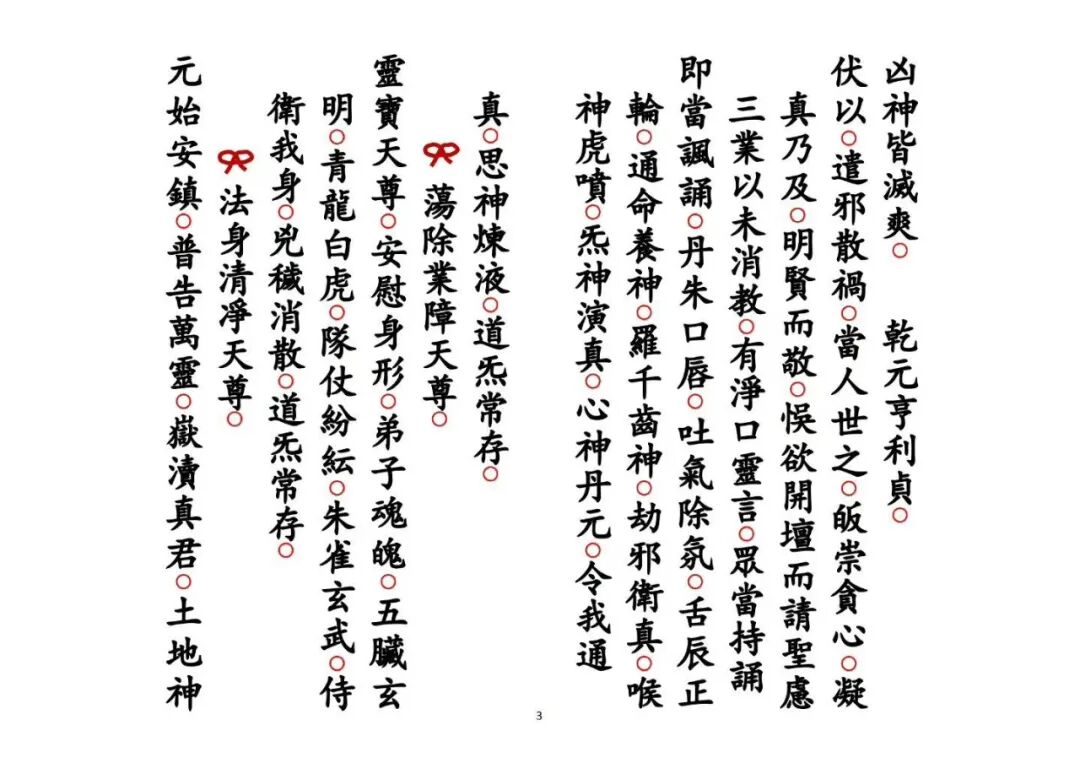 凶神皆滅爽○　乾元亨利貞○
伏以○遣邪散禍○當人世之○皈崇貪心○凝
真乃及○明賢而敬○悞欲開壇而請聖慮
三業以未消教○有淨口靈言○眾當持誦
即當諷誦○丹朱口唇○吐氣除氛○舌辰正
輪○通命養神○羅千齒神○劫邪衛真○喉
神虎噴○炁神演真○心神丹元○令我通
真○思神煉液○道炁常存○
蕩除業障天尊○
靈寶天尊○安慰身形○弟子魂魄○五臟玄
明○青龍白虎○隊仗紛紜○朱雀玄武○侍
衛我身○兇穢消散○道炁常存○
法身清凈天尊○
元始安鎮○普告萬靈○嶽瀆真君○土地神
3